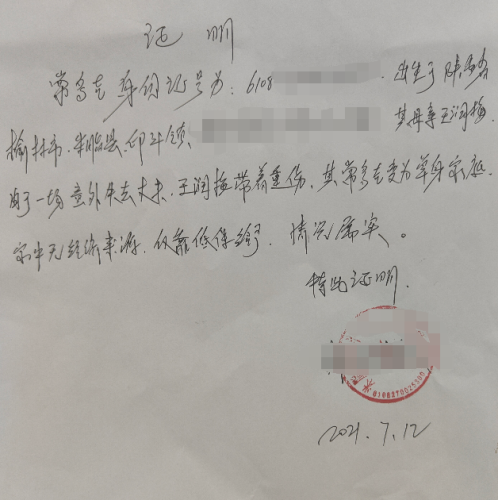 证明
常多友 身份证号为：6108 . 出生于 陕西省
榆林市.米脂县.印斗镇. 其母亲王润梅.
由于一场意外失去丈夫.王润梅带着重伤.其常多友变为单身家庭.
家中无经济来源.仅靠低保给予.情况属实。
特此证明.
2021.7.12